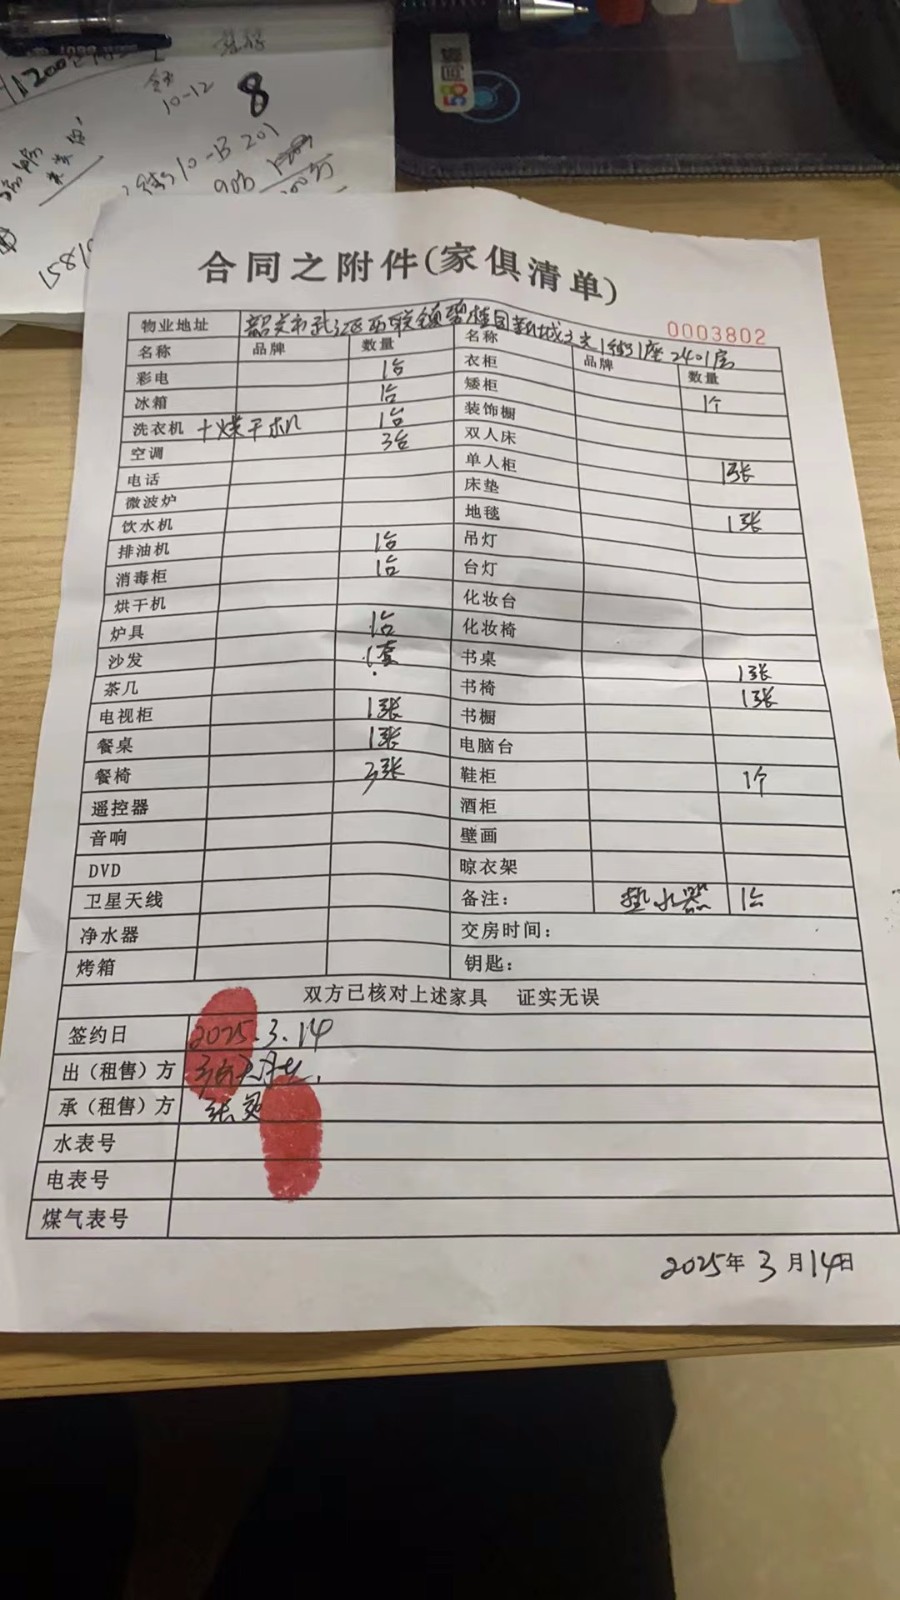 8
10-12
合同之附件(家俱清单)
0003802
物业地址 韶关市武江区西联镇碧桂园 1街1座2401房
名称 品牌 数量 名称 品牌 数量
彩电 1台 衣柜
冰箱 1台 矮柜 1个
洗衣机 十烘干机 1台 装饰橱
空调 3台 双人床
电话 单人柜 1张
微波炉 床垫
饮水机 地毯 1张
排油机 1台 吊灯
消毒柜 1台 台灯
烘干机 化妆台
炉具 1台 化妆椅
沙发 1套 书桌 1张
茶几 书椅 1张
电视柜 1张 书橱
餐桌 1张 电脑台
餐椅 3张 鞋柜 1个
遥控器 酒柜
音响 壁画
DVD 晾衣架
卫星天线 备注: 热水器 1台
净水器 交房时间:
烤箱 钥匙:
双方已核对上述家具 证实无误
签约日 2025.3.14
出（租售）方
承（租售）方 张
水表号
电表号
煤气表号
2025年 3 月 14日